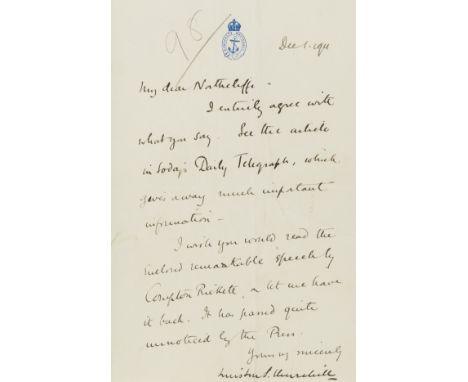 98/
Dec 1. 1911
My dear Northcliffe -
I entirely agree with
what you say. See the article
in today's Daily Telegraph, which
gives away much important
information -
I wish you would read the
enclosed remarkable speech by
Compton Rickett, & let me have
it back. It has passed quite
unnoticed by the Press.
Yours vy sincerely
Winston S. Churchill